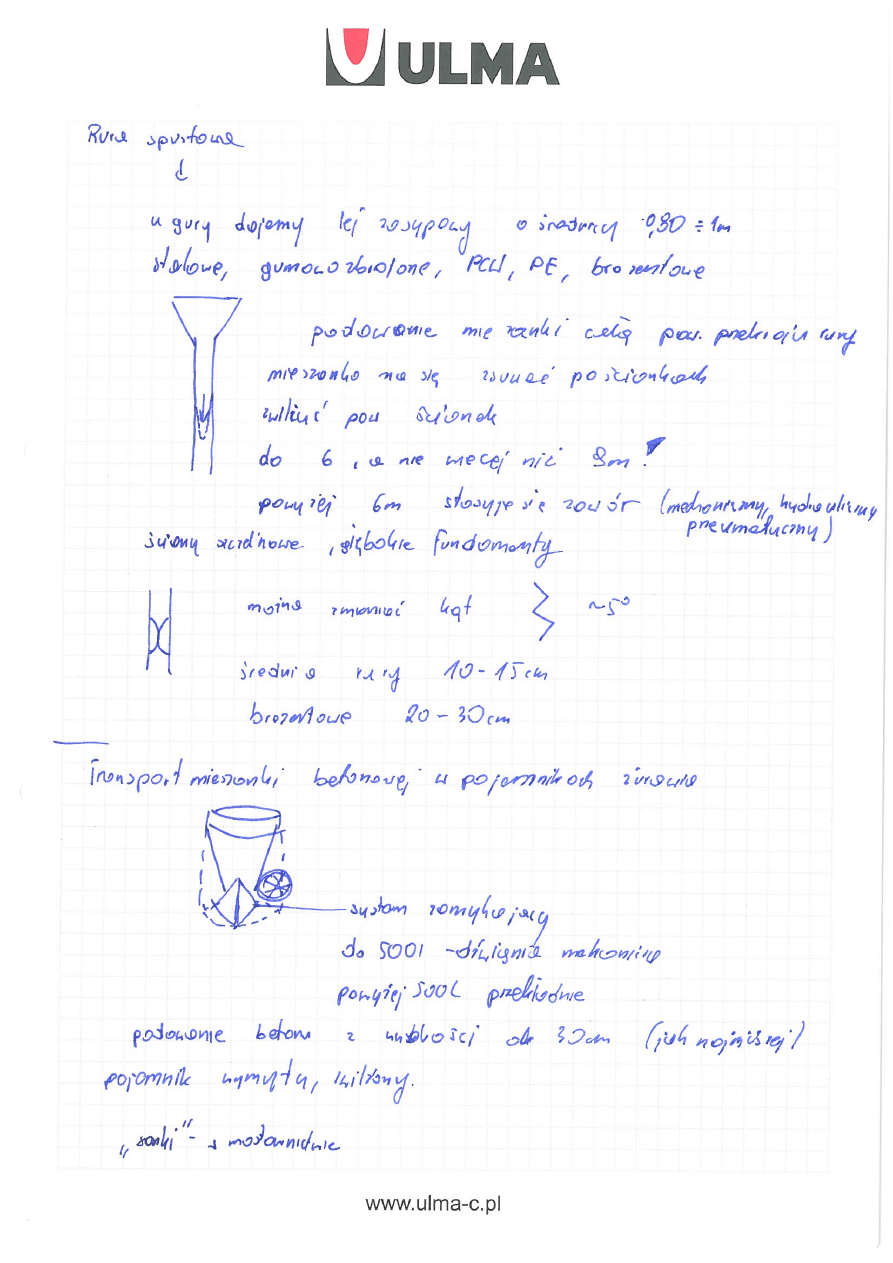 ULMA
Rura spustowa
u gury dajemy lej zasypowy o średnicy 0,80 ÷ 1m
stalowe, gumowo zbrojone, PCW, PE, brezentowe
podawanie mieszanki całą pow. przekroju rury
mieszanka ma się zsuwać po ściankach
zwilżyć pow ścianek
do 6, a nie wecej niż 8m!
powyżej 6m stosuje się zawór (mechaniczny, hydrauliczny
pneumatyczny)
ściany , głębokie fundamenty
można zmieniać kąt ~5°
średnica rury 10-15cm
brezentowe 20-30cm
Transport mieszanki betonowej w pojemnikach żurawia
system zamykający
do 500l - dźwignia
powyżej 500l przekładnie
podawanie betonu z wysokości ok 30cm (jak najniżej)
pojemnik wymyty, zwilżony.
"sanki" -
www.ulma-c.pl